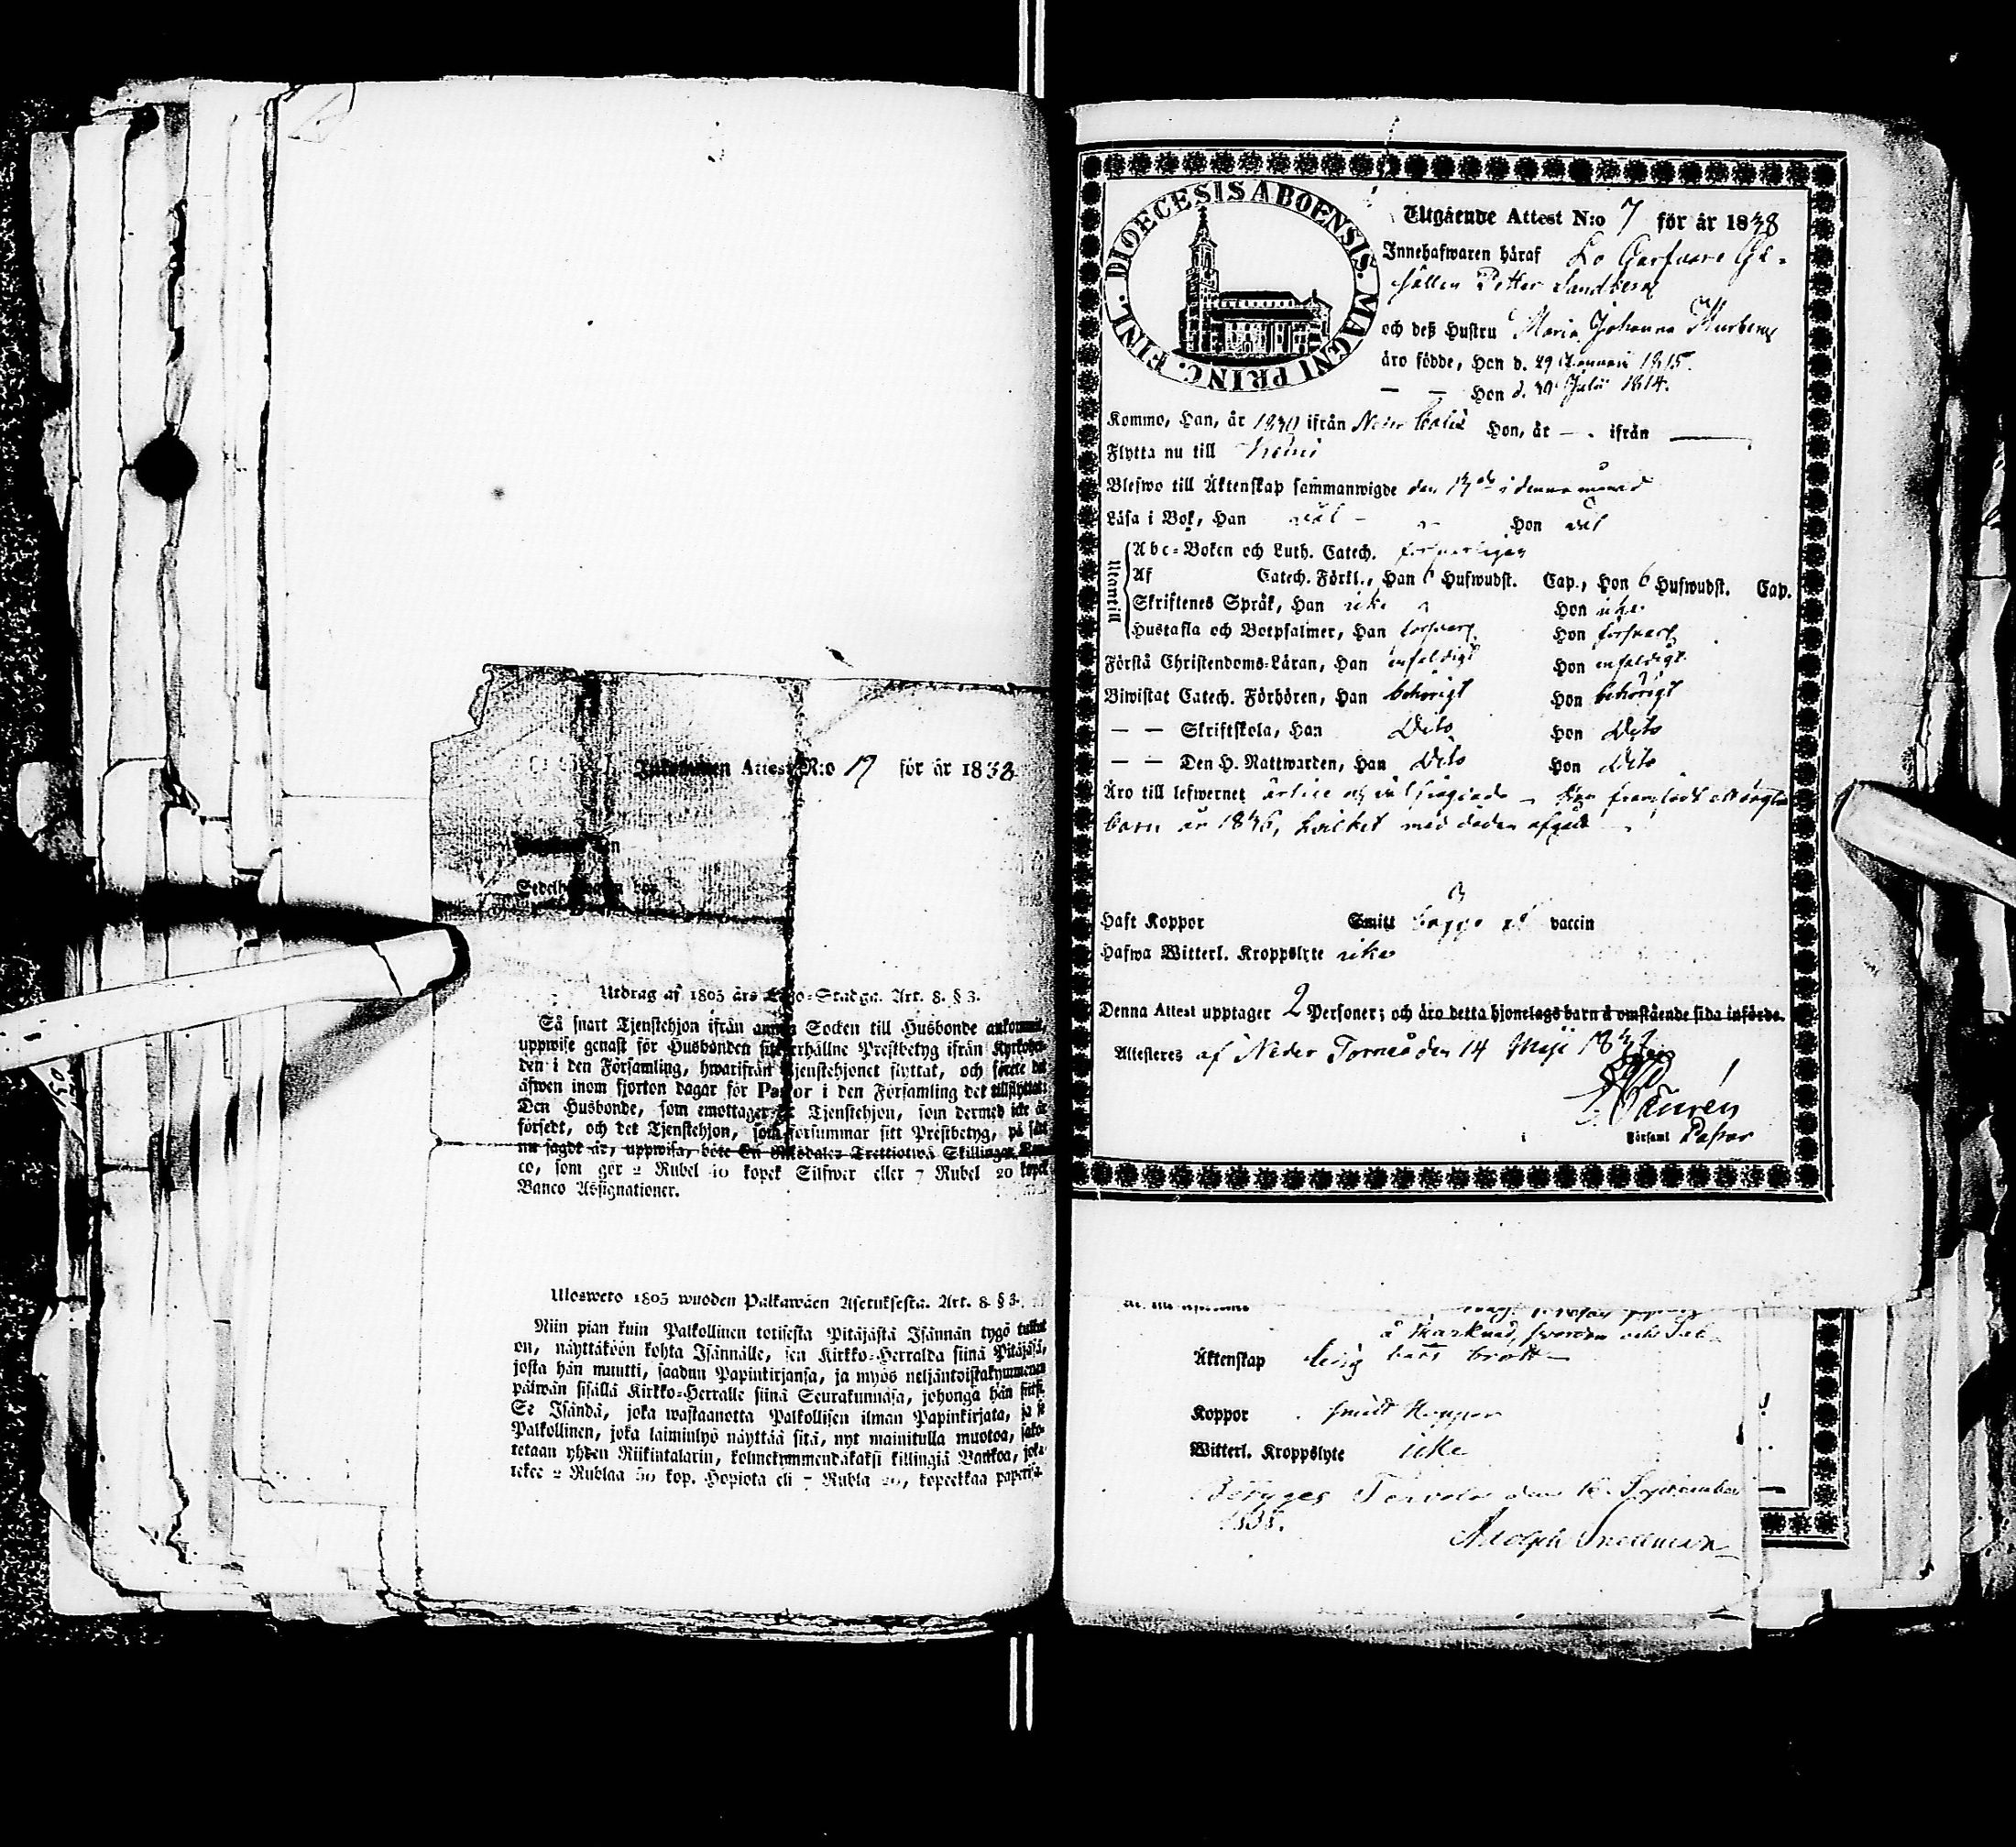 Attest N:o 17 för år 1838
Utdrag af 1805 års Lego-Stadga. Art. 8. § 3.
Så snart Tjenstehjon ifrån annan Socken till Husbonde ankommit,
uppwise genast för Husbonden sitt erhållne Prestbetyg ifrån Kyrkoher-
den i den Församling, hwarifrån Tjenstehjonet flyttat, och förete det
äfwen inom fjorton dagar för Pastor i den Församling det tillflyttat.
Den Husbonde, som emottager Tjenstehjon, som dermed icke är
försedt, och det Tjenstehjon, som försummar sitt Prestbetyg, på sätt
nu sagdt är, uppwisa, böte En Riksdaler Trettiotwå Skillingar Ban-
co, som gör 2 Rubel 40 kopek Silfwer eller 7 Rubel 20 kopek
Banco Assignationer.
Ulosweto 1805 wuoden Palkawäen Asetuksesta. Art. 8. § 3.
Niin pian kuin Palkollinen toisesta Pitäjästä Isännän tygö tullut
on, näyttäköön kohta Isännälle, sen Kirkko-Herralda siinä Pitäjäsä,
josta hän muutti, saadun Papinkirjansa, ja myös neljäntoistakymmenen
päiwän sisällä Kirkko-Herralle siinä Seurakunnasa, johonga hän
Se Isändä, joka wastaanotta Palkollisen ilman Papinkirjata, ja se
Palkollinen, joka laiminlyö näyttää sitä, nyt mainitulla muotoa, sako-
tetaan yhden Riikintalarin, kolmekymmendäkaksi killingiä Bankoa, joka
tekee 2 Rublaa kop. Hopiota eli 7 Rubla 20, kopeekkaa
DIOECESIS ABOENSIS. MAGNI PRINC. FINL.
Utgående Attest N:o 7 för år 1838
Innehafwaren häraf Lo Garfware Ge-
sällen Petter Sandberg
och deß Hustru Maria Johanna
äro födde, Han d. 29 Januari 1815.
— — Hon d. 29 Julii 1814.
Kommo, Han, år ifrån Hon, år — ifrån —
Flytta nu till Kemi
Blefwo till Äktenskap sammanwigde den i denna månad
Läsa i Bok, Han wäl Hon wäl
Utantill
Abc-Boken och Luth. Catech. försvarligen
Af Catech. Förkl., Han 6 Hufwudst. Cap., Hon 6 Hufwudst. Cap.
Skriftenes Språk, Han icke Hon icke
Hustafla och Botpsalmer, Han försvarl. Hon försvarl.
Förstå Christendoms-Läran, Han enfaldigt Hon enfaldigt
Biwistat Catech. Förhören, Han behörigt Hon behörigt
— — Skriftskola, Han Dito Hon Dito
— — Den H. Nattwarden, Han Dito Hon Dito
Äro till lefwernet ärlige och wäl frägdade — Hon framfödt ett oägta
barn år 1836, hvilket med döden afgått
Haft Koppor Smitt vaccin
Hafwa Witterl. Kroppslyte icke
Denna Attest upptager 2 Personer; och äro detta hjonelags barn å omstående sida införde.
Attesteres af Neder Torneå den 14 Maji 1838
Församl Pastor
å Marknad,
Äktenskap ledig
Koppor Smitt Koppor
Witterl. Kroppslyte icke
Betyges Tervola den September
Adolph Snellman